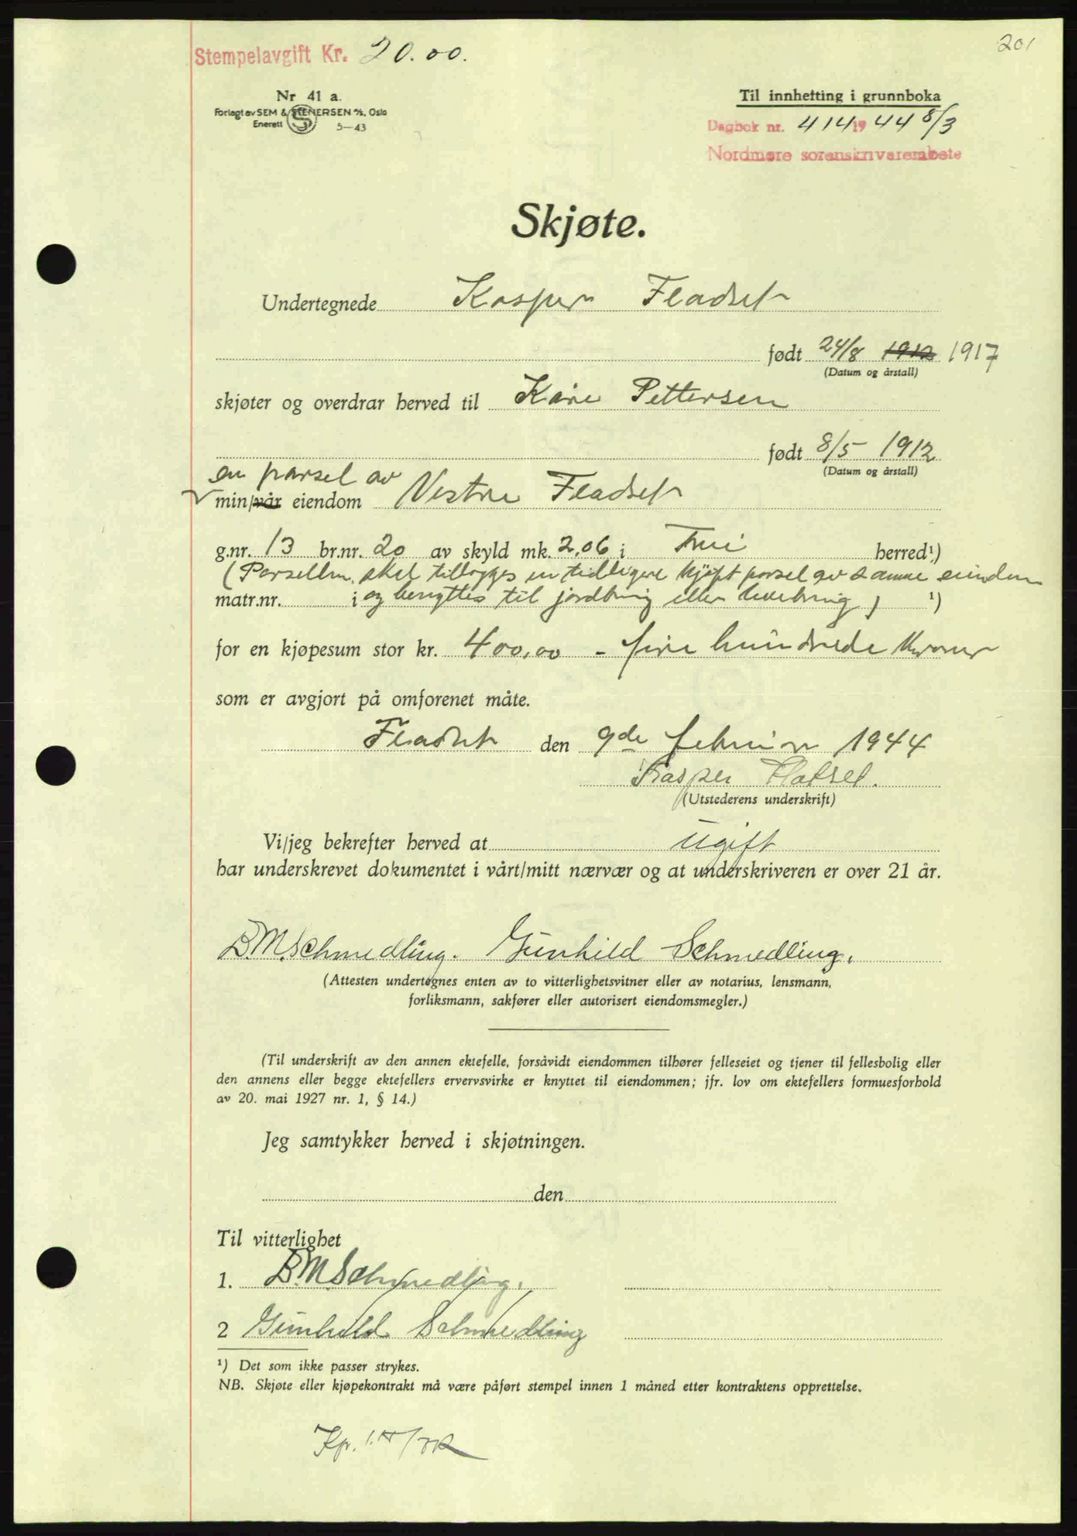 201
Stempelavgift Kr. 20.00.
Nr 41 a.
Forlagt av SEM & STENERSEN A/S, Oslo
Enerett 5-43
Til innhefting i grunnboka
Dagbok nr. 414 1944 8/3
Nordmøre sorenskriverembete
Skjøte.
Undertegnede Kasper Fladset
født 24/8 1912 1917
(Datum og årstall)
skjøter og overdrar herved til Kåre Pettersen
født 8/5 1912
(Datum og årstall)
en parsel av
min/vår eiendom Vestre Fladset
g.nr. 13 br.nr. 20 av skyld mk. 2,06 i herred¹)
(Parsellen skal tillegges en tidligere kjøpt parsel av samme eiendom
matr.nr. i og benyttes til jordbruk eller ) ¹)
for en kjøpesum stor kr. 400,00 - fire hundrede kroner
som er avgjort på omforenet måte.
Fladset den 9de februar 1944
Kasper Flatset.
(Utstederens underskrift)
Vi/jeg bekrefter herved at ugift
har underskrevet dokumentet i vårt/mitt nærvær og at underskriveren er over 21 år.
B.M. Schmedling. Gunhild Schmedling.
(Attesten undertegnes enten av to vitterlighetsvitner eller av notarius, lensmann,
forliksmann, sakfører eller autorisert eiendomsmegler.)
(Til underskrift av den annen ektefelle, forsåvidt eiendommen tilhører felleseiet og tjener til fellesbolig eller
den annens eller begge ektefellers ervervsvirke er knyttet til eiendommen; jfr. lov om ektefellers formuesforhold
av 20. mai 1927 nr. 1, § 14.)
Jeg samtykker herved i skjøtningen.
den
Til vitterlighet
1. B.M. Schmedling.
2 Gunhild Schmedling
¹) Det som ikke passer strykes.
NB. Skjøte eller kjøpekontrakt må være påført stempel innen 1 måned etter kontraktens opprettelse.